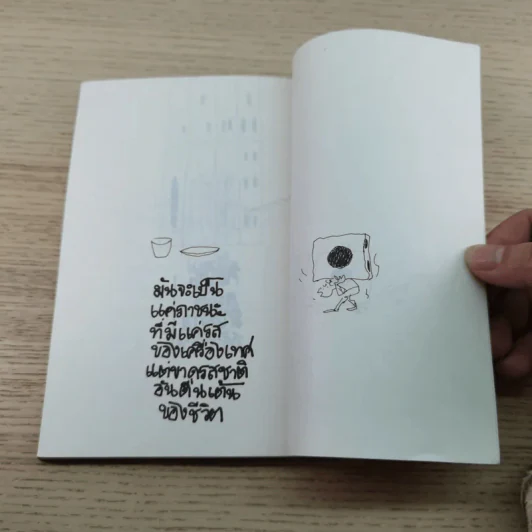 มันจะเป็น
แค่ภาชนะ
ที่มีแค่รส
ของเครื่องเทศ
แต่ขาดรสชาติ
อันตื่นเต้น
ของชีวิต